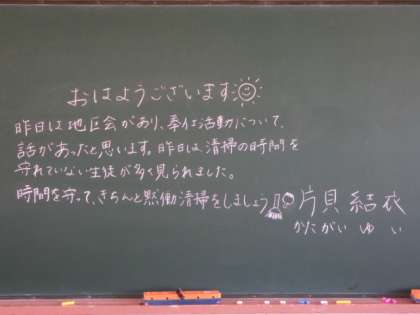 おはようございます
昨日は地区会があり、奉仕活動について、
話があったと思います。昨日は、清掃の時間を
守れていない生徒が多く見られました。
時間を守って、きちんと黙働清掃をしましょう
片貝 結衣
かたがい ゆい